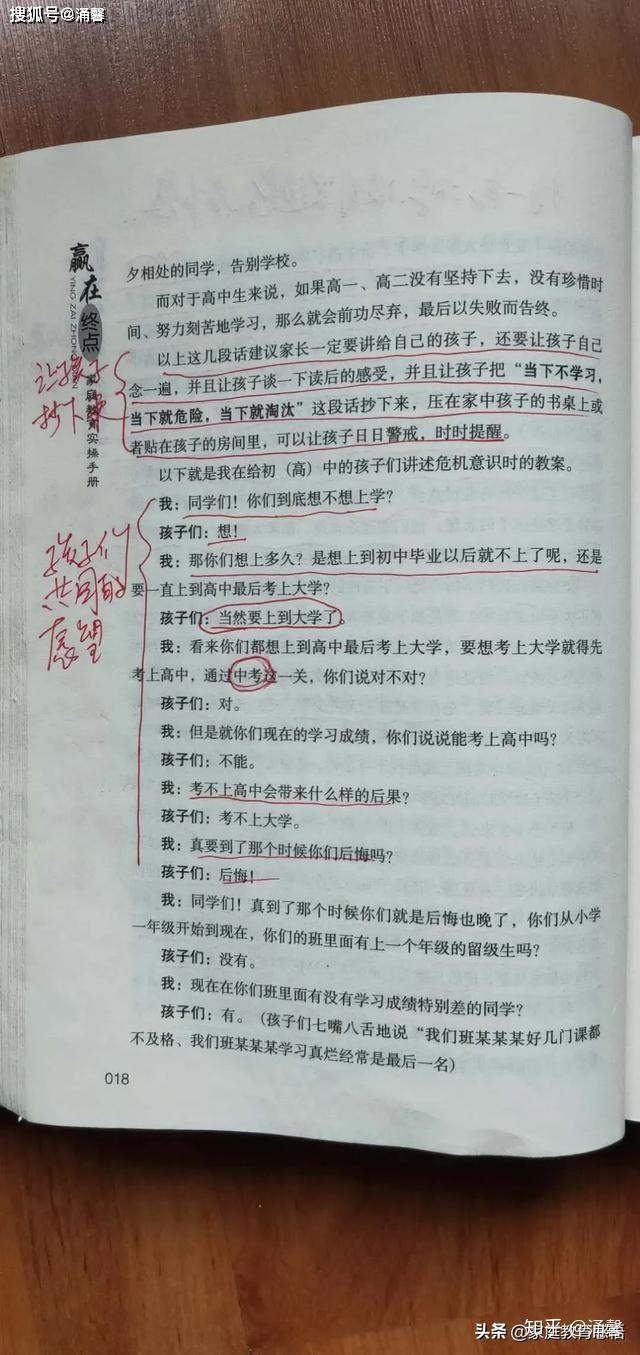 搜狐号@涌馨
赢在终点
YING ZAI ZHONG
家庭教育实操手册
夕相处的同学，告别学校。
而对于高中生来说，如果高一、高二没有坚持下去，没有珍惜时
间、努力刻苦地学习，那么就会前功尽弃，最后以失败而告终。
以上这几段话建议家长一定要讲给自己的孩子，还要让孩子自己
念一遍，并且让孩子谈一下读后的感受，并且让孩子把“当下不学习，
当下就危险，当下就淘汰”这段话抄下来，压在家中孩子的书桌上或
者贴在孩子的房间里，可以让孩子日日警戒，时时提醒。
以下就是我在给初（高）中的孩子们讲述危机意识时的教案。
我：同学们！你们到底想不想上学？
孩子们：想！
我：那你们想上多久？是想上到初中毕业以后就不上了呢，还是
要一直上到高中最后考上大学？
孩子们：当然要上到大学了。
我：看来你们都想上到高中最后考上大学，要想考上大学就得先
考上高中，通过中考这一关，你们说对不对？
孩子们：对。
我：但是就你们现在的学习成绩，你们说说能考上高中吗？
孩子们：不能。
我：考不上高中会带来什么样的后果？
孩子们：考不上大学。
我：真要到了那个时候你们后悔吗？
孩子们：后悔！
我：同学们！真到了那个时候你们就是后悔也晚了，你们从小学
一年级开始到现在，你们的班里面有上一个年级的留级生吗？
孩子们：没有。
我：现在在你们班里面有没有学习成绩特别差的同学？
孩子们：有。（孩子们七嘴八舌地说“我们班某某某好几门课都
不及格、我们班某某某学习真烂经常是最后一名）
018
让孩子
抄下来
孩子们
共同的
愿望
知乎 @涌馨
头条 @家庭教育思语